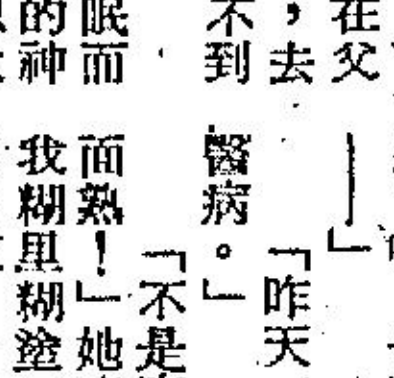 在父
，去
不到
眠而
的神
—」
「昨天
醫病。」
「不是
面熟！」她
我糊里糊塗